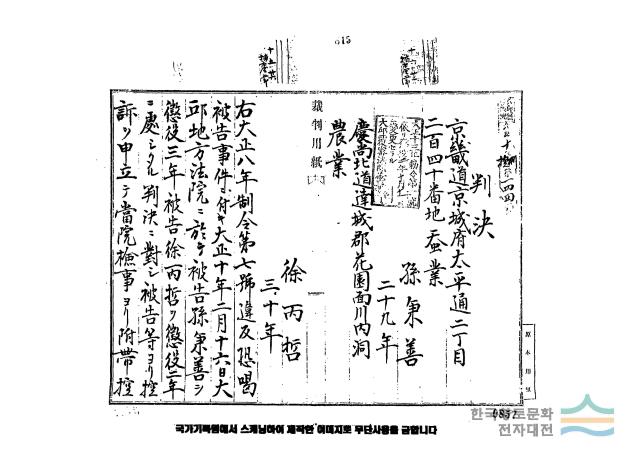 615
判決
京畿道京城府太平通二丁目
二百四十番地 蚕業
孫秉善
二十九年
慶尚北道達城郡花園面川内洞
農業
徐丙哲
三十年
右大正八年制令第七號違反恐喝
被告事件ニ付キ大正十年二月十六日大
邱地方法院ニ於テ被告孫秉善ヲ
懲役三年被告徐丙哲ヲ懲役二年
ニ處シタル判決ニ對シ被告等ヨリ控
訴ヲ申立テ當院檢事ヨリ附帶控
裁判用紙
原本用
0852
한국향토문화
전자대전
국가기록원에서 스캐닝하여 제작한 이미지로 무단사용을 금합니다